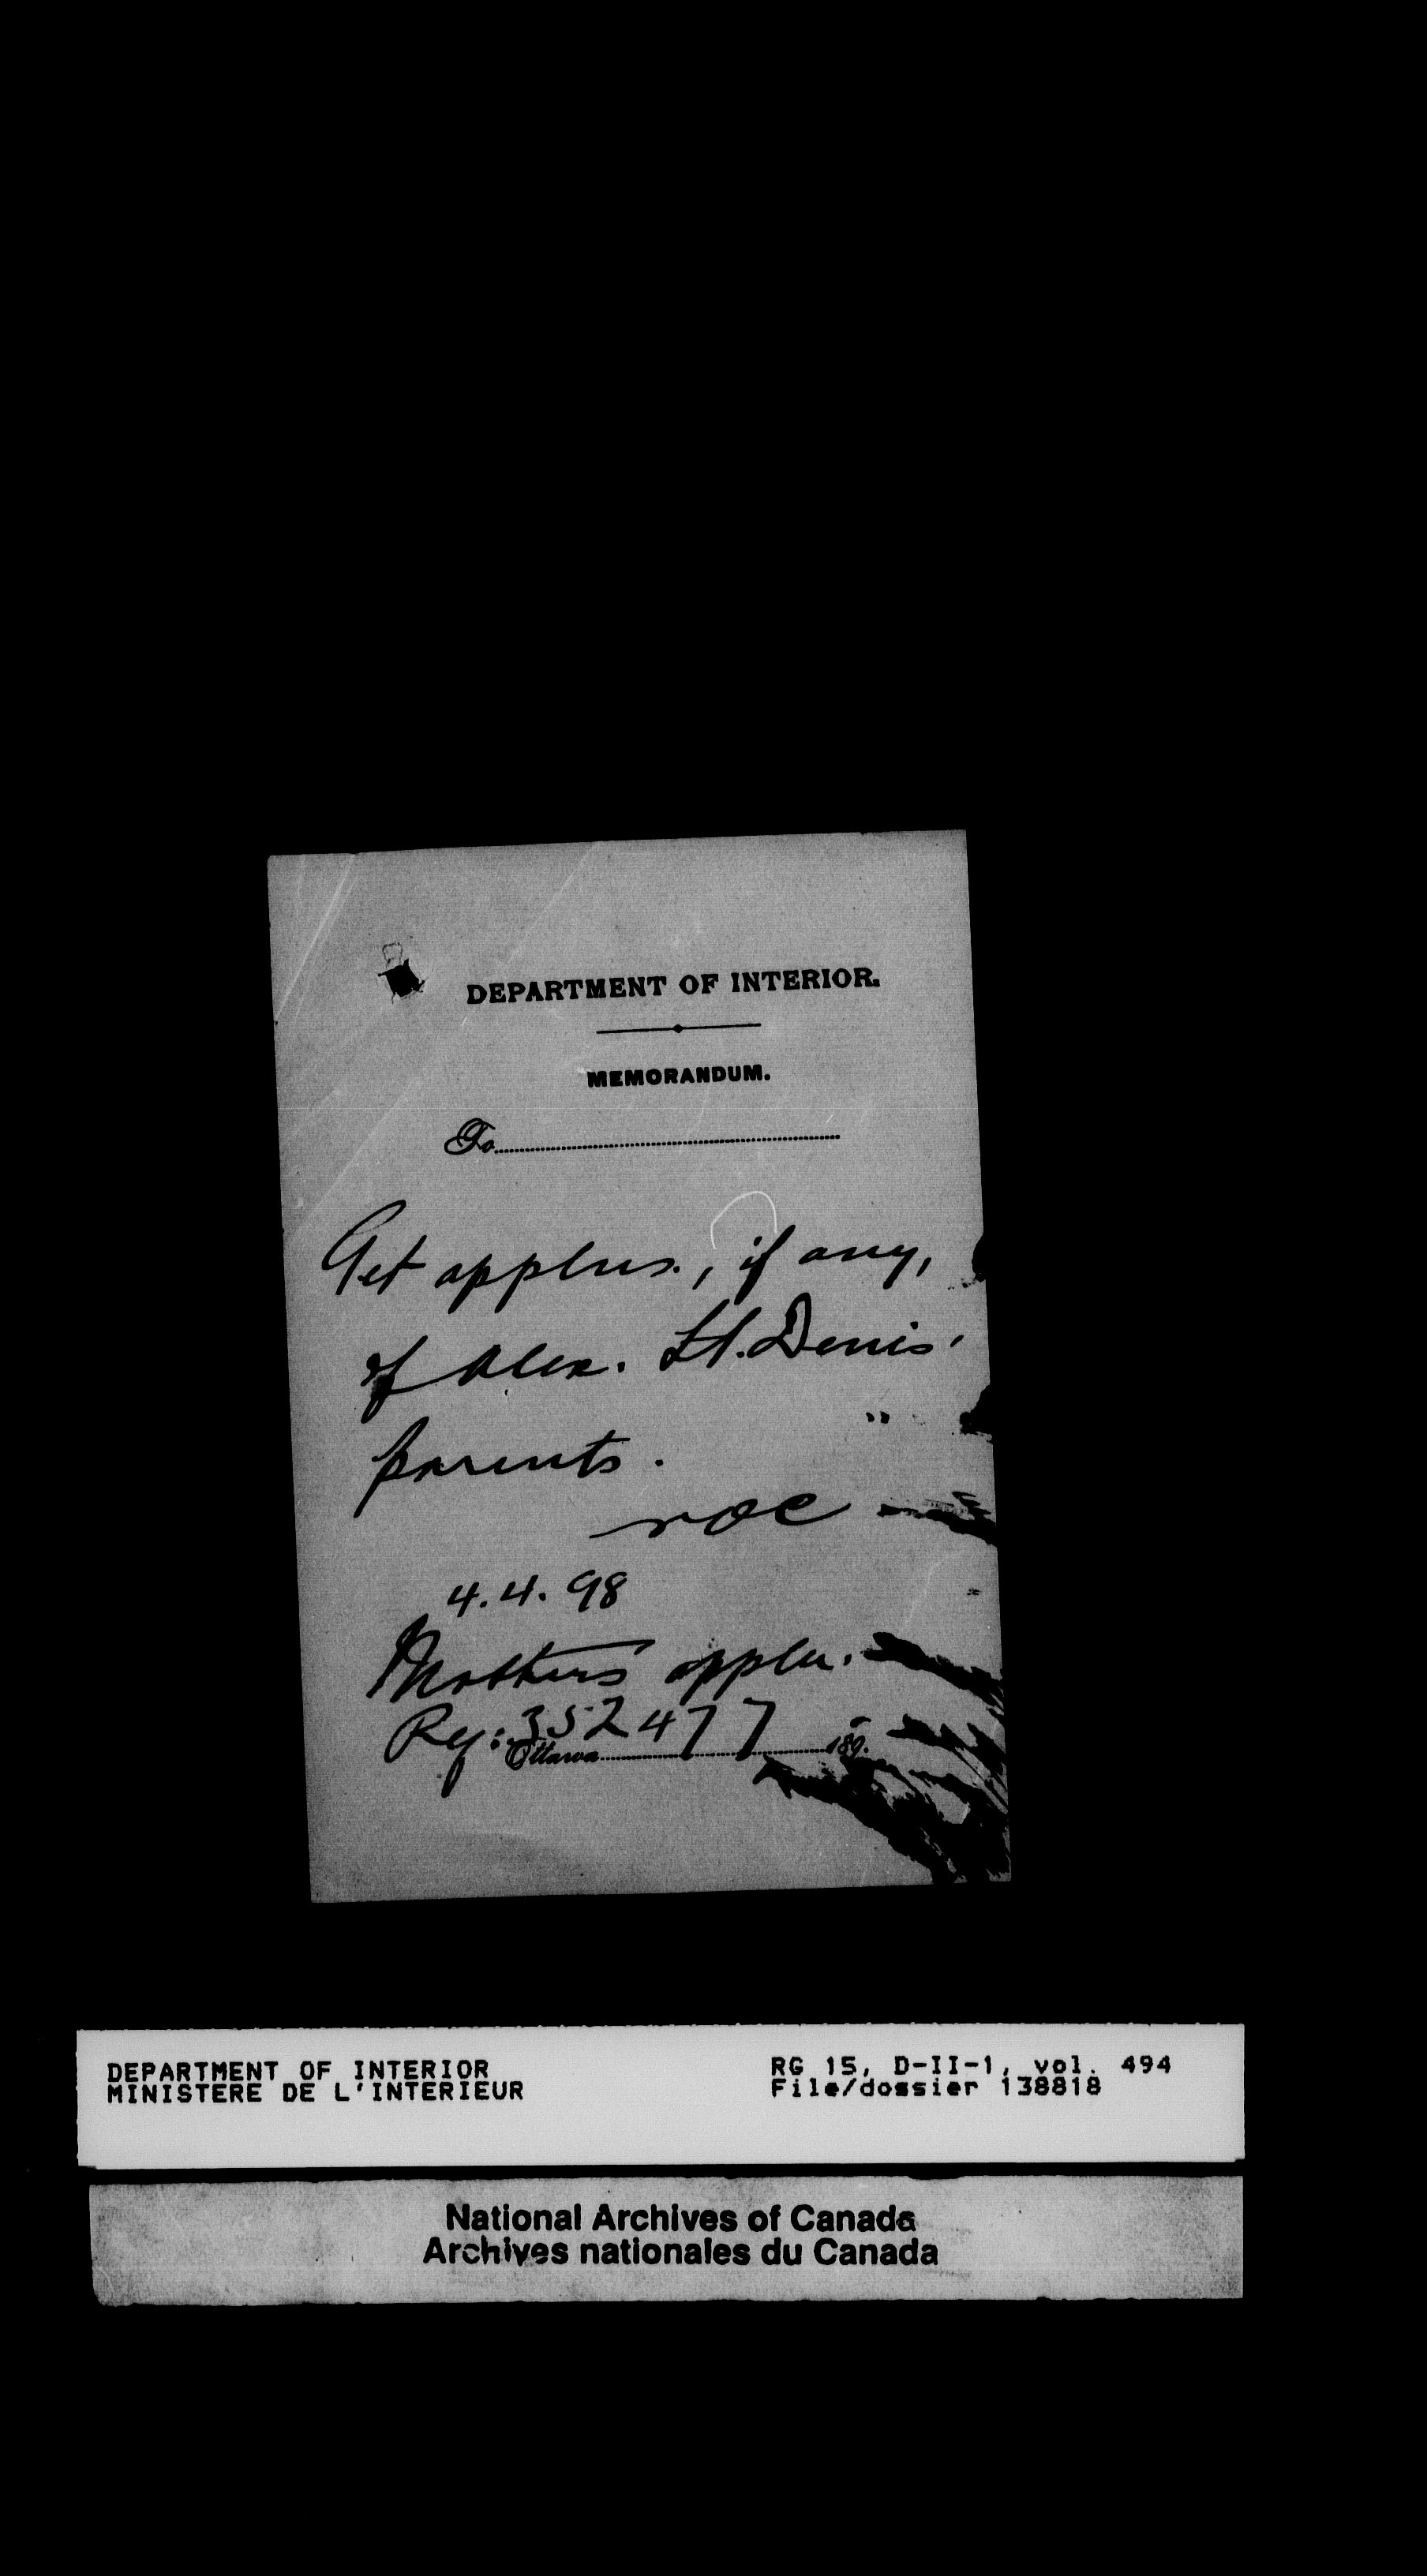 DEPARTMENT OF INTERIOR.
MEMORANDUM.
To
Get applns., if any,
of Alex. St. Denis'
parents.
roc
4.4.98
Mothers appln.
Ref: 352477
Ottawa 189.
DEPARTMENT OF INTERIOR
MINISTERE DE L'INTERIEUR
RG 15, D-II-1, vol. 494
File/dossier 138818
National Archives of Canada
Archives nationales du Canada